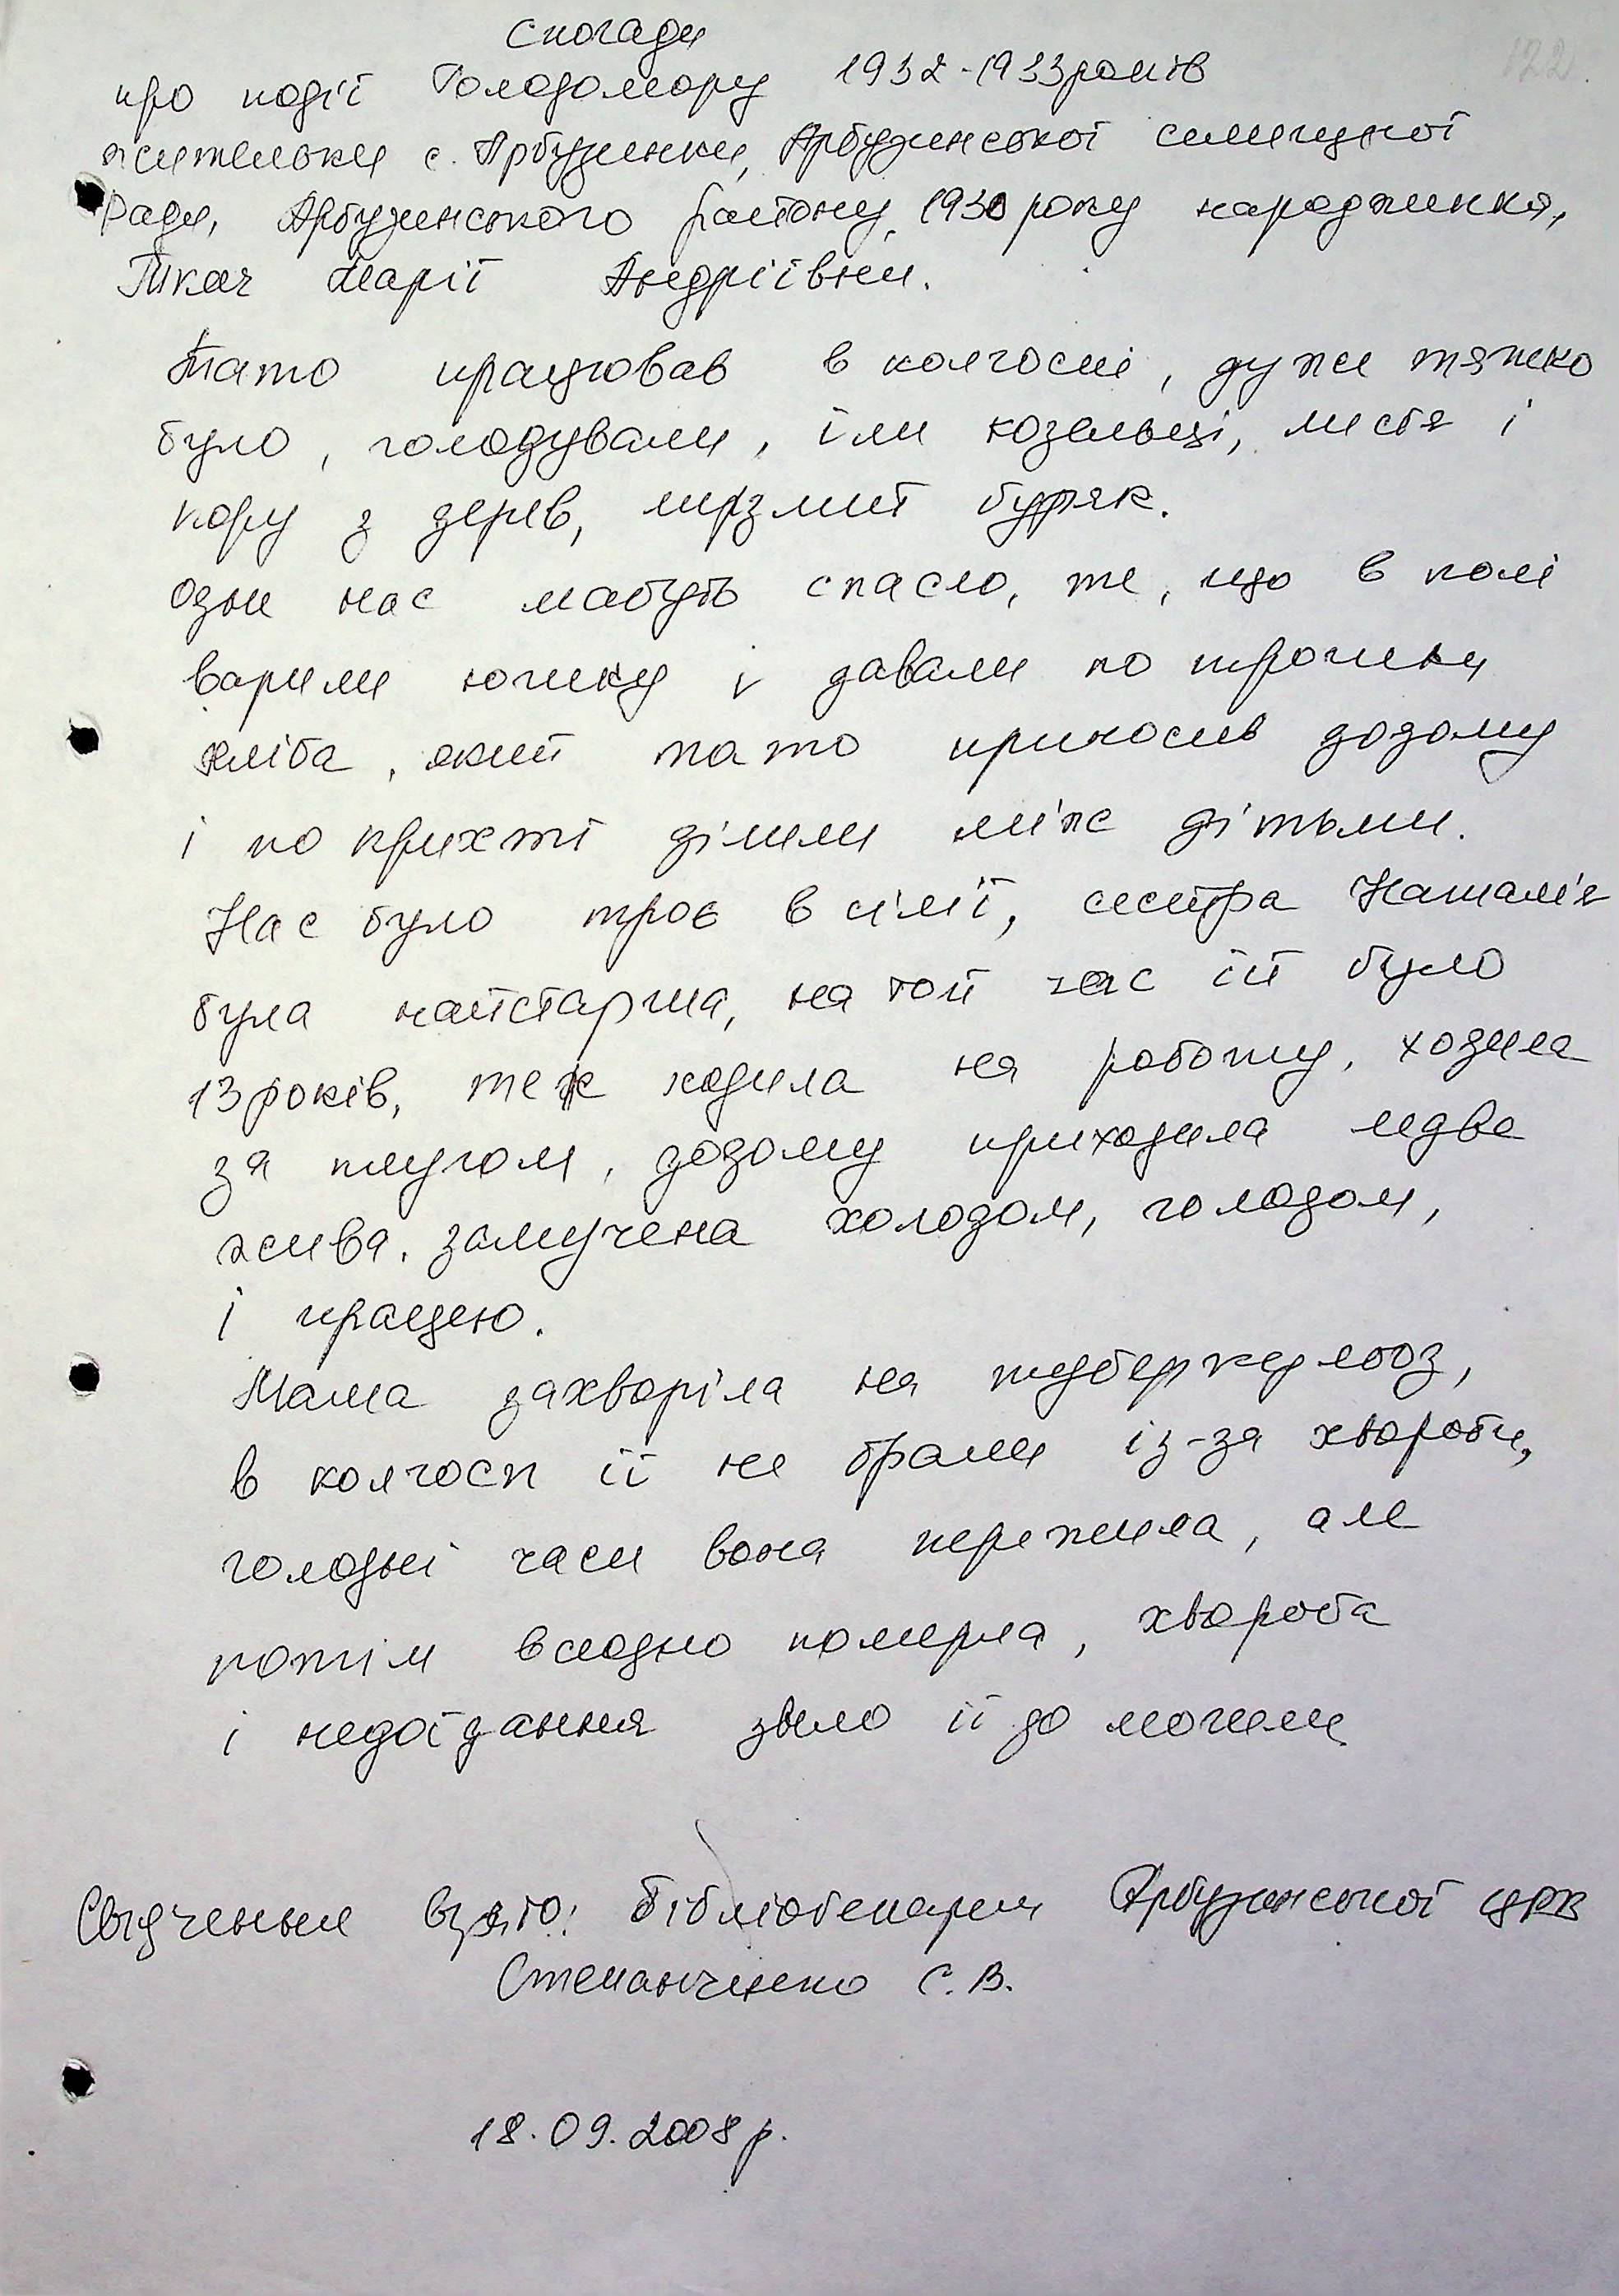 122
Спогади
про події Голодомору 1932-1933 років
жительки с. Арбузинки, Арбузинської селищної
ради, Арбузинського району, 1930 року народження,
Ткач Марії Андріївни.
Тато працював в колгоспі, дуже тяжко
було, голодували, їли козельці, листя і
кору з дерев, мерзлий буряк.
Одне нас мабуть спасло, те, що в полі
варили юшку і давали по трошки
хліба, який тато приносив додому
і по крихті ділили між дітьми.
Нас було троє в сім'ї, сестра Наталія
була найстарша, на той час їй було
13 років, теж ходила на роботу, ходила
за плугом, додому приходила ледве
жива, замучена холодом, голодом,
і працею.
Мама захворіла на туберкульоз,
в колгосп її не брали із-за хвороби,
голодні часи вона пережила, але
потім всеодно померла, хвороба
і недоїдання звело її до могили
Свідчення взято: бібліотекарем Арбузинської ЦРБ
Степанченко С.В.
18.09.2008р.